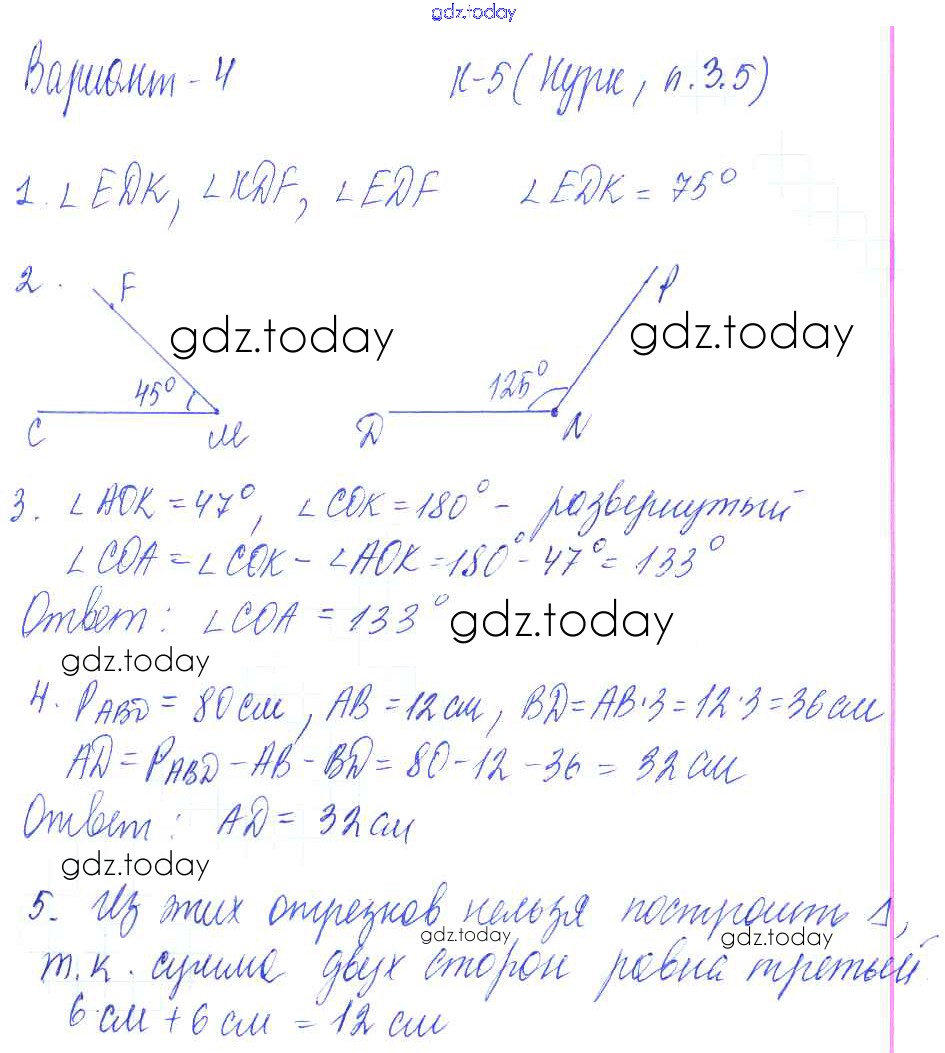 gdz.today
Вариант - 4 К-5 (Нурк, п.3.5)
1. ∠EDK, ∠KDF, ∠EDF ∠EDK = 75°
2.
F
P
gdz.today gdz.today
45° 125°
C M D N
3. ∠AOK = 47°, ∠COK = 180° - развернутый
∠COA = ∠COK - ∠AOK = 180° - 47° = 133°
Ответ: ∠COA = 133° gdz.today
gdz.today
4. P_ABD = 80 см, AB = 12 см, BD = AB·3 = 12·3 = 36 см
AD = P_ABD - AB - BD = 80 - 12 - 36 = 32 см
Ответ: AD = 32 см
gdz.today
5. Из этих отрезков нельзя построить Δ,
gdz.today gdz.today
т.к. сумма двух сторон равна третьей.
6 см + 6 см = 12 см